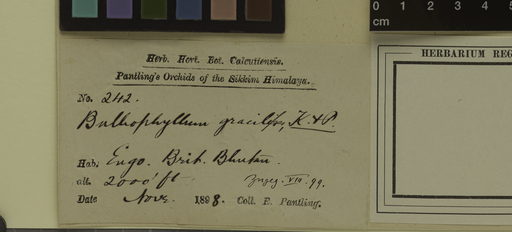 0 1 2 3 4 5
cm
HERBARIUM REG
Herb. Hort. Bot. Calcuttensis.
Pantling's Orchids of the Sikkim Himalaya.
No. 242.
Bulbophyllum gracilipes, K. & P.
Hab. Engo. Brit. Bhutan.
alt. 2000' ft
VIII. 99.
Date Nov. 1898. Coll. R. Pantling.